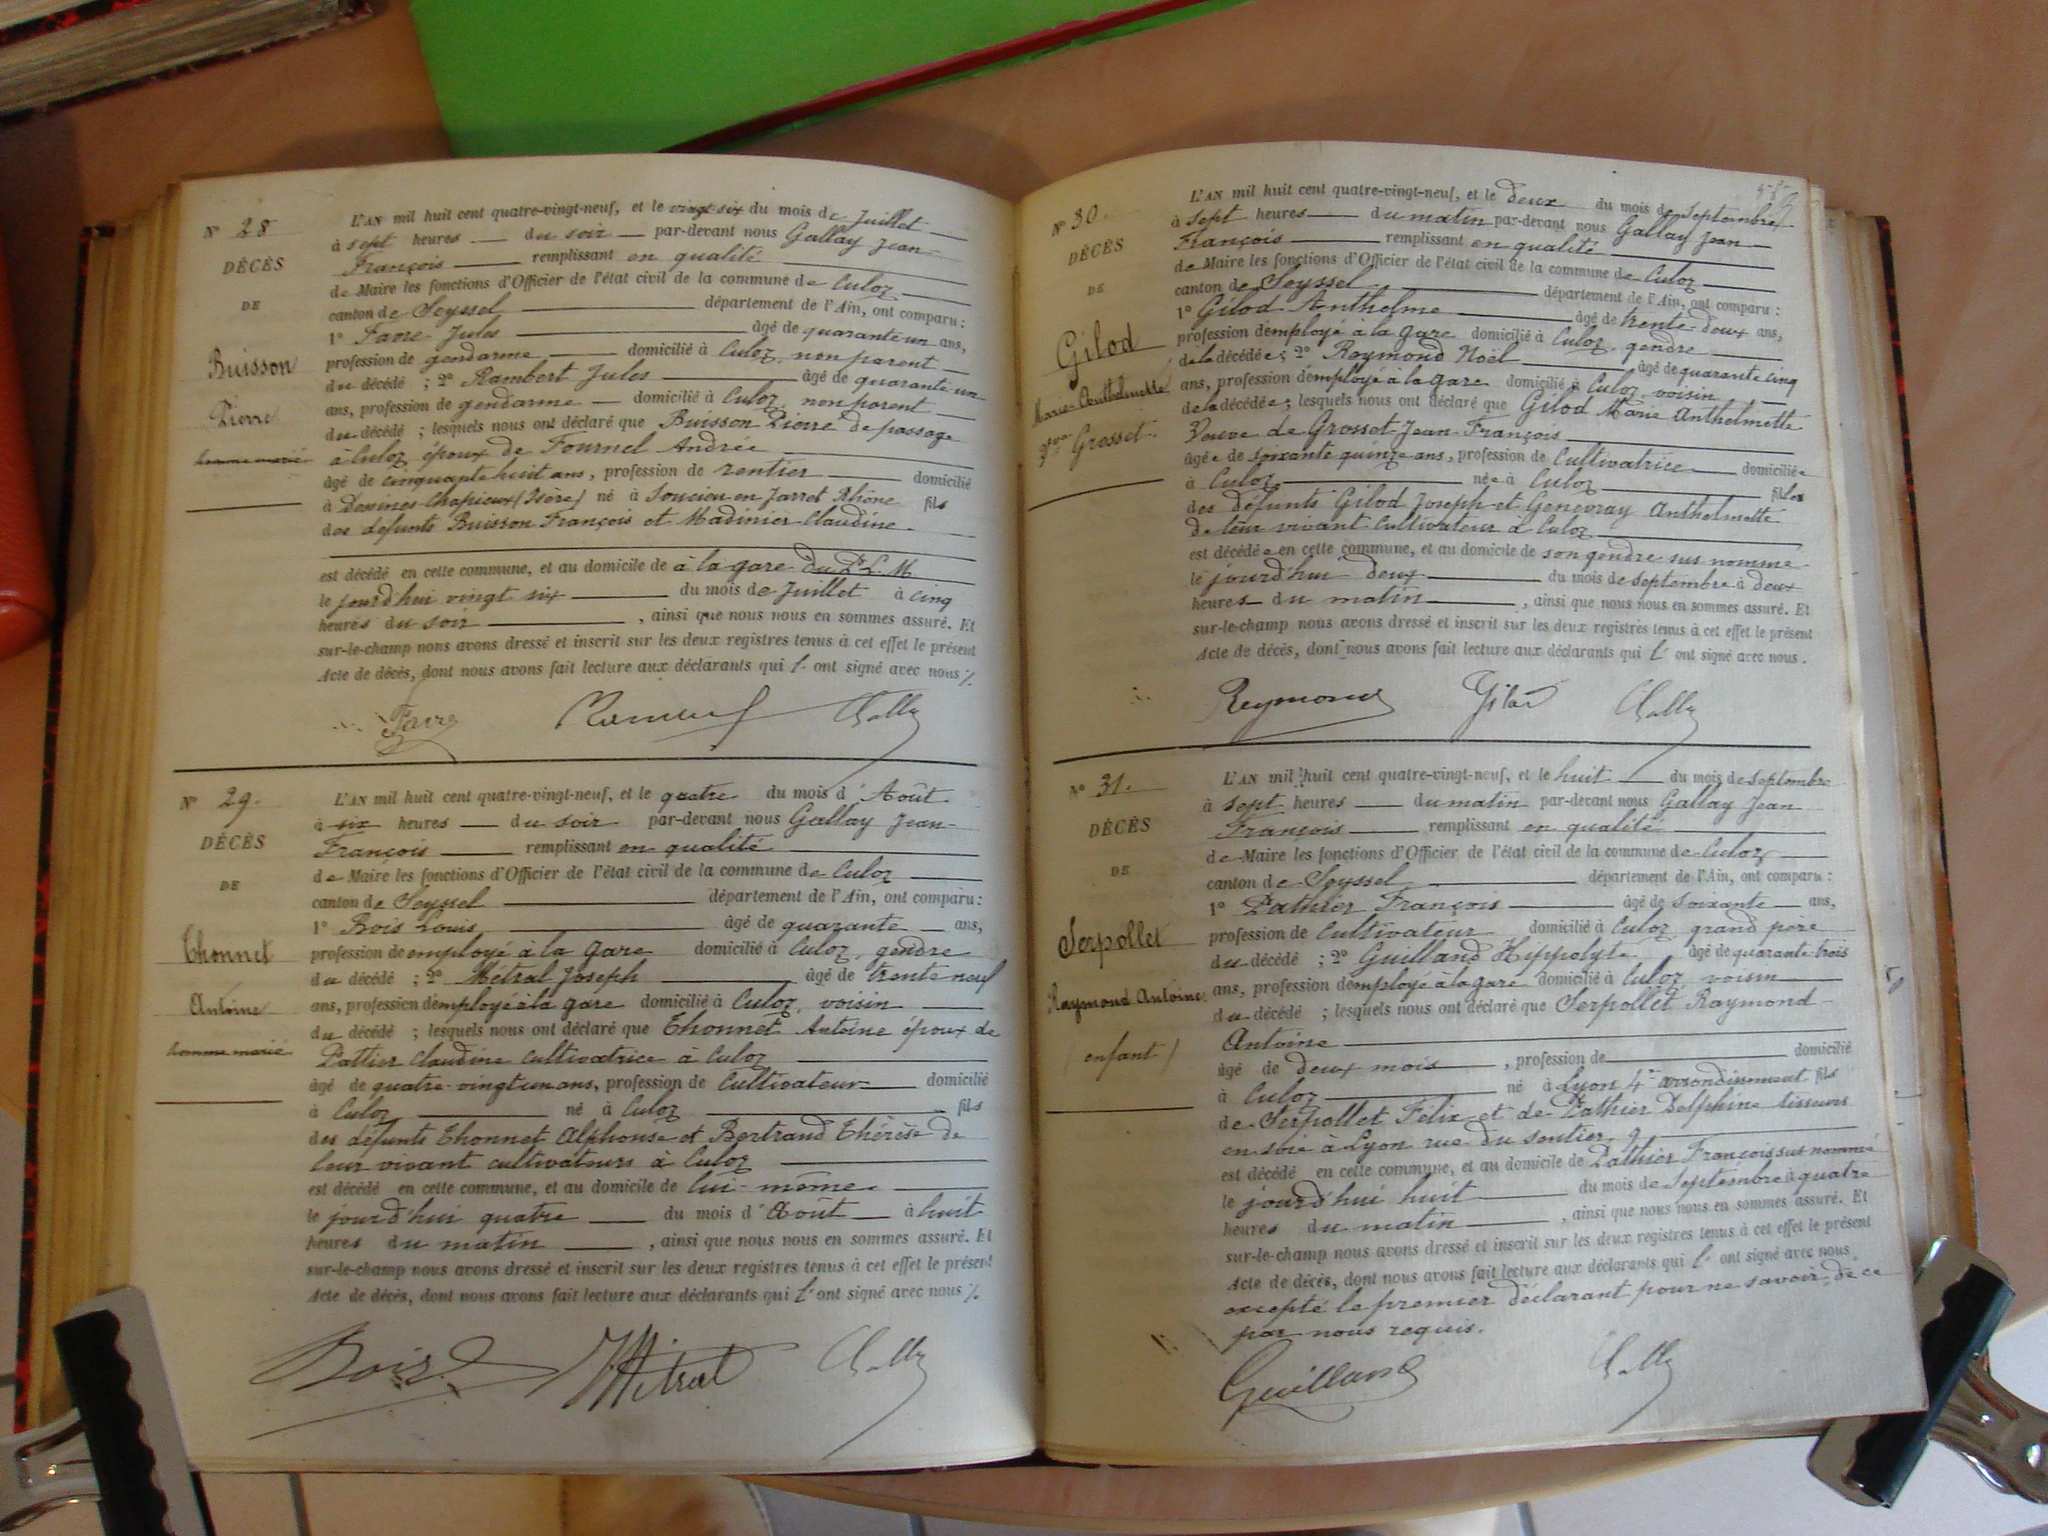 N° 28
DÉCÈS
DE
Buisson
Pierre
homme marié
L'AN mil huit cent quatre-vingt-neuf, et le vingt six du mois de Juillet
à sept heures du soir par-devant nous Gallay Jean
François remplissant en qualité
de Maire les fonctions d'Officier de l'état civil de la commune de Culoz
canton de Seyssel département de l'Ain, ont comparu :
1° Favre Jules âgé de quarante un ans,
profession de gendarme domicilié à Culoz, non parent
du décédé ; 2° Rambert Jules âgé de quarante-un
ans, profession de gendarme domicilié à Culoz, non parent
du décédé ; lesquels nous ont déclaré que Buisson Pierre de passage
à Culoz, époux de Fournel Andrée
âgé de cinquante huit ans, profession de rentier domicilié
à Dessines Chapieux (Isère) né à Soucieu en Jarret Rhône fils
des défunts Buisson François et Madinier Claudine
est décédé en cette commune, et au domicile de à la gare du P.L.M.
le jourd'hui vingt six du mois de Juillet à cinq
heures du soir , ainsi que nous nous en sommes assuré. Et
sur-le-champ nous avons dressé et inscrit sur les deux registres tenus à cet effet le présent
Acte de décès, dont nous avons fait lecture aux déclarants qui l' ont signé avec nous %
Favre
N° 29.
DÉCÈS
DE
Thonnet
Antoine
homme marié
L'AN mil huit cent quatre-vingt-neuf, et le quatre du mois d' Août
à six heures du soir par-devant nous Gallay Jean-
François remplissant en qualité
de Maire les fonctions d'Officier de l'état civil de la commune de Culoz
canton de Seyssel département de l'Ain, ont comparu :
1° Bois Louis âgé de quarante ans,
profession de employé à la gare domicilié à Culoz, gendre
du décédé ; 2° Métral Joseph âgé de trente neuf
ans, profession d'employé à la gare domicilié à Culoz, voisin
du décédé ; lesquels nous ont déclaré que Thonnet Antoine époux de
Pattier Claudine cultivatrice à Culoz
âgé de quatre-vingt un ans, profession de Cultivateur domicilié
à Culoz né à Culoz fils
des défunts Thonnet Alphonse et Bertrand Thérèse de
leur vivant cultivateurs à Culoz
est décédé en cette commune, et au domicile de lui-même
le jourd'hui quatre du mois d' Août à huit
heures du matin , ainsi que nous nous en sommes assuré. Et
sur-le-champ nous avons dressé et inscrit sur les deux registres tenus à cet effet le présent
Acte de décès, dont nous avons fait lecture aux déclarants qui l' ont signé avec nous %
Bois Métral
N° 30.
DÉCÈS
DE
Gilod
Marie-Anthelmette
Grosset
L'AN mil huit cent quatre-vingt-neuf, et le deux du mois de Septembre
à sept heures du matin par-devant nous Gallay Jean
François remplissant en qualité
de Maire les fonctions d'Officier de l'état civil de la commune de Culoz
canton de Seyssel département de l'Ain, ont comparu :
1° Gilod Anthelme âgé de trente-deux ans,
profession d'employé à la gare domicilié à Culoz, gendre
de la décédée ; 2° Raymond Noël âgé de quarante cinq
ans, profession d'employé à la gare domicilié à Culoz, voisin
de la décédée ; lesquels nous ont déclaré que Gilod Marie Anthelmette
Veuve de Grosset Jean-François
âgée de soixante quinze ans, profession de Cultivatrice domiciliée
à Culoz née à Culoz fille
des défunts Gilod Joseph et Genevray Anthelmette
de leur vivant cultivateur à Culoz
est décédée en cette commune, et au domicile de son gendre sus nommé
le jourd'hui deux du mois de septembre à deux
heures du matin , ainsi que nous nous en sommes assuré. Et
sur-le-champ nous avons dressé et inscrit sur les deux registres tenus à cet effet le présent
Acte de décès, dont nous avons fait lecture aux déclarants qui l' ont signé avec nous.
Reymond Gilod
N° 31.
DÉCÈS
DE
Serpollet
Raymond Antoine
(enfant)
L'AN mil huit cent quatre-vingt-neuf, et le huit du mois de septembre
à sept heures du matin par-devant nous Gallay Jean
François remplissant en qualité
de Maire les fonctions d'Officier de l'état civil de la commune de Culoz
canton de Seyssel département de l'Ain, ont comparu :
1° Pathier François âgé de soixante ans,
profession de Cultivateur domicilié à Culoz grand père
du décédé ; 2° Guilland Hippolyte âgé de quarante-trois
ans, profession d'employé à la gare domicilié à Culoz, voisin
du décédé ; lesquels nous ont déclaré que Serpollet Raymond-
Antoine
âgé de deux mois , profession de domicilié
à Culoz né à Lyon 4e arrondissement fils
de Serpollet Felix et de Pathier Delphine tisseurs
en soie à Lyon rue du sentier, 9
est décédé en cette commune, et au domicile de Pathier François sus nommé
le jourd'hui huit du mois de Septembre à quatre
heures du matin , ainsi que nous nous en sommes assuré. Et
sur-le-champ nous avons dressé et inscrit sur les deux registres tenus à cet effet le présent
Acte de décès, dont nous avons fait lecture aux déclarants qui l' ont signé avec nous
excepté le premier déclarant pour ne savoir, de ce
par nous requis.
Guilland